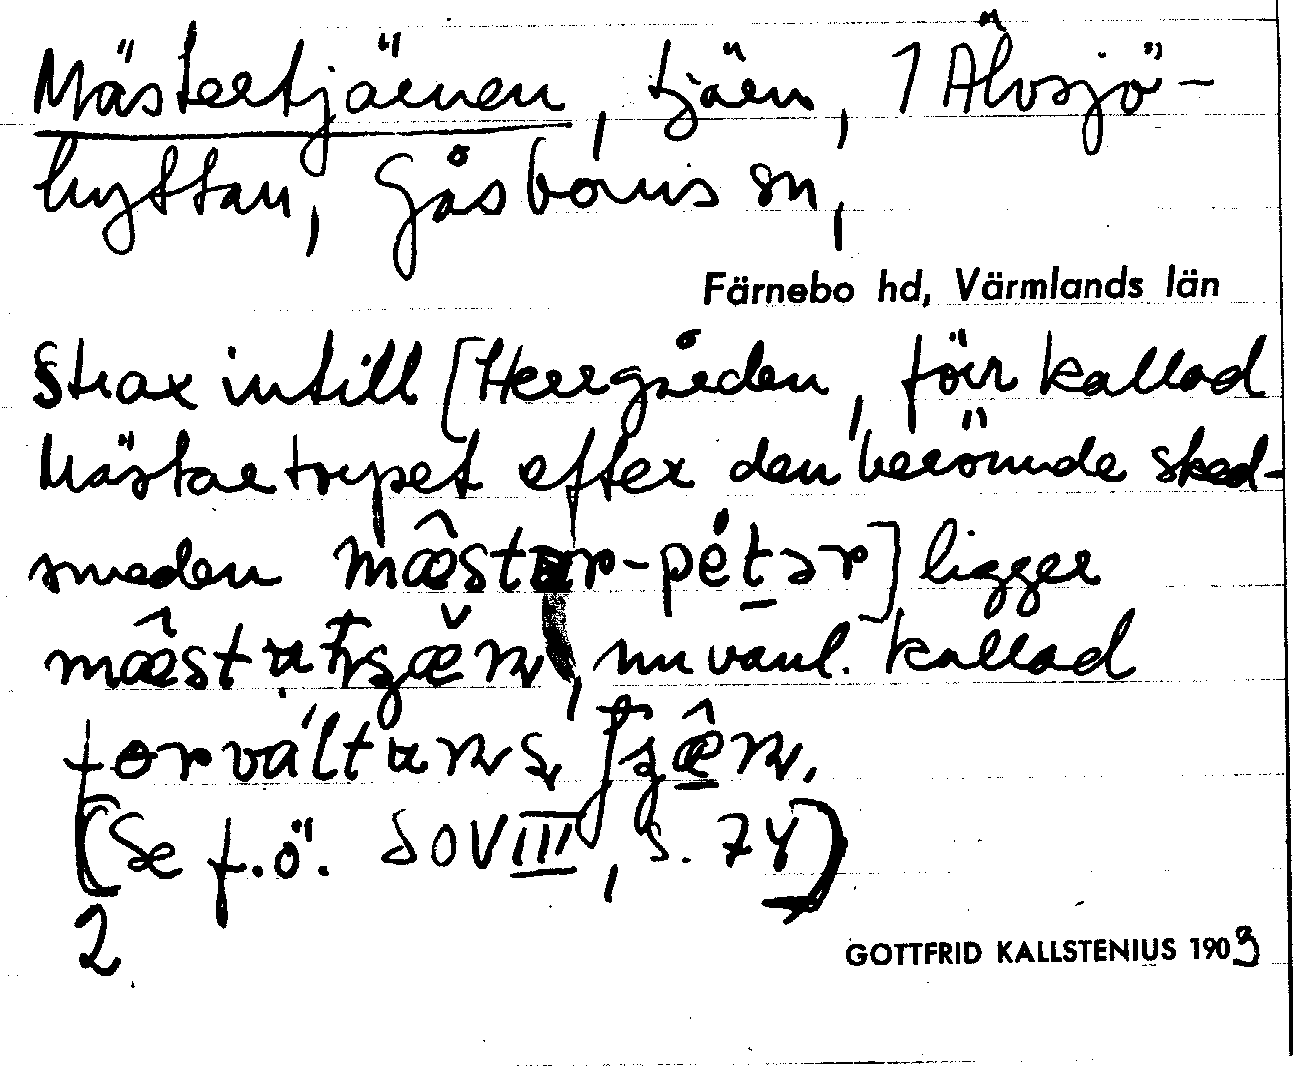 Mästertjärnen, tjärn, 1 Älvsjö-
hyttan, Gåsborns sn,
Färnebo hd, Värmlands län
Strax intill [Herrgården, förr kallad
Mästartorpet efter den berömde sked-
smeden mæ̂star-pétər] ligger
nu vanl. kallad
(Se f.ö. SOVIII, s. 74)
2
GOTTFRID KALLSTENIUS 1903